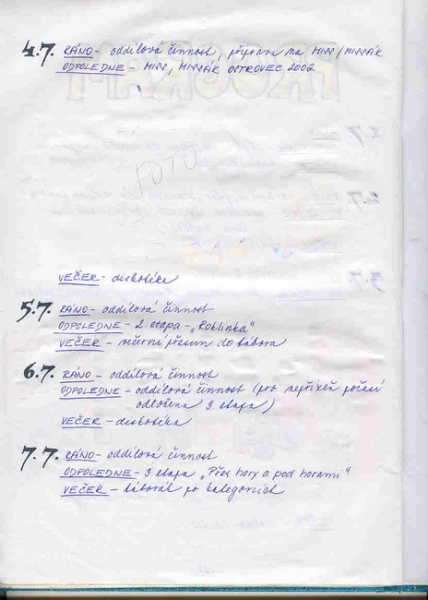 4.7. RÁNO - oddílová činnost, příprava na MISS/MISSÁK
ODPOLEDNE - MISS, MISSÁK OSTROVEC 2002
FOTO
VEČER - diskotéka
5.7. RÁNO - oddílová činnost
ODPOLEDNE - 2. etapa - „Roklinka"
VEČER - večerní přesun do tábora
6.7. RÁNO - oddílová činnost
ODPOLEDNE - oddílová činnost (pro nepřízeň počasí
odložena 3. etapa)
VEČER - diskotéka
7.7. RÁNO - oddílová činnost
ODPOLEDNE - 3. etapa „Přes hory a pod horami"
VEČER - táborák po kategoriích